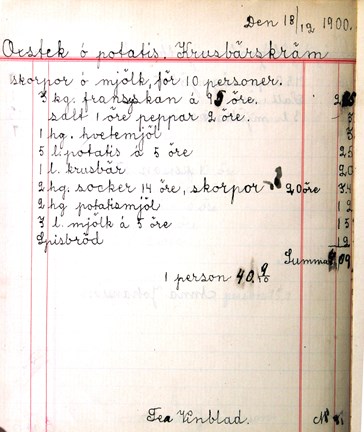 Den 18/12 1900.
Oxstek ó potatis. Krusbärskräm
skorpor ó mjölk, för 10 personer.
3 kg. fransyskan á 95 öre. 2 85
salt 1 öre peppar 2 öre. 3
1 hg. hvetemjöl 3
5 l. potatis á 5 öre 25
1 l. krusbär 20
2 hg. socker 14 öre, skorpor 20 öre 34
2 hg potatismjöl 12
3 l. mjölk á 5 öre 15
Spisbröd 12
Summa 4,09
1 person 40 9/10
Tea Vinblad.